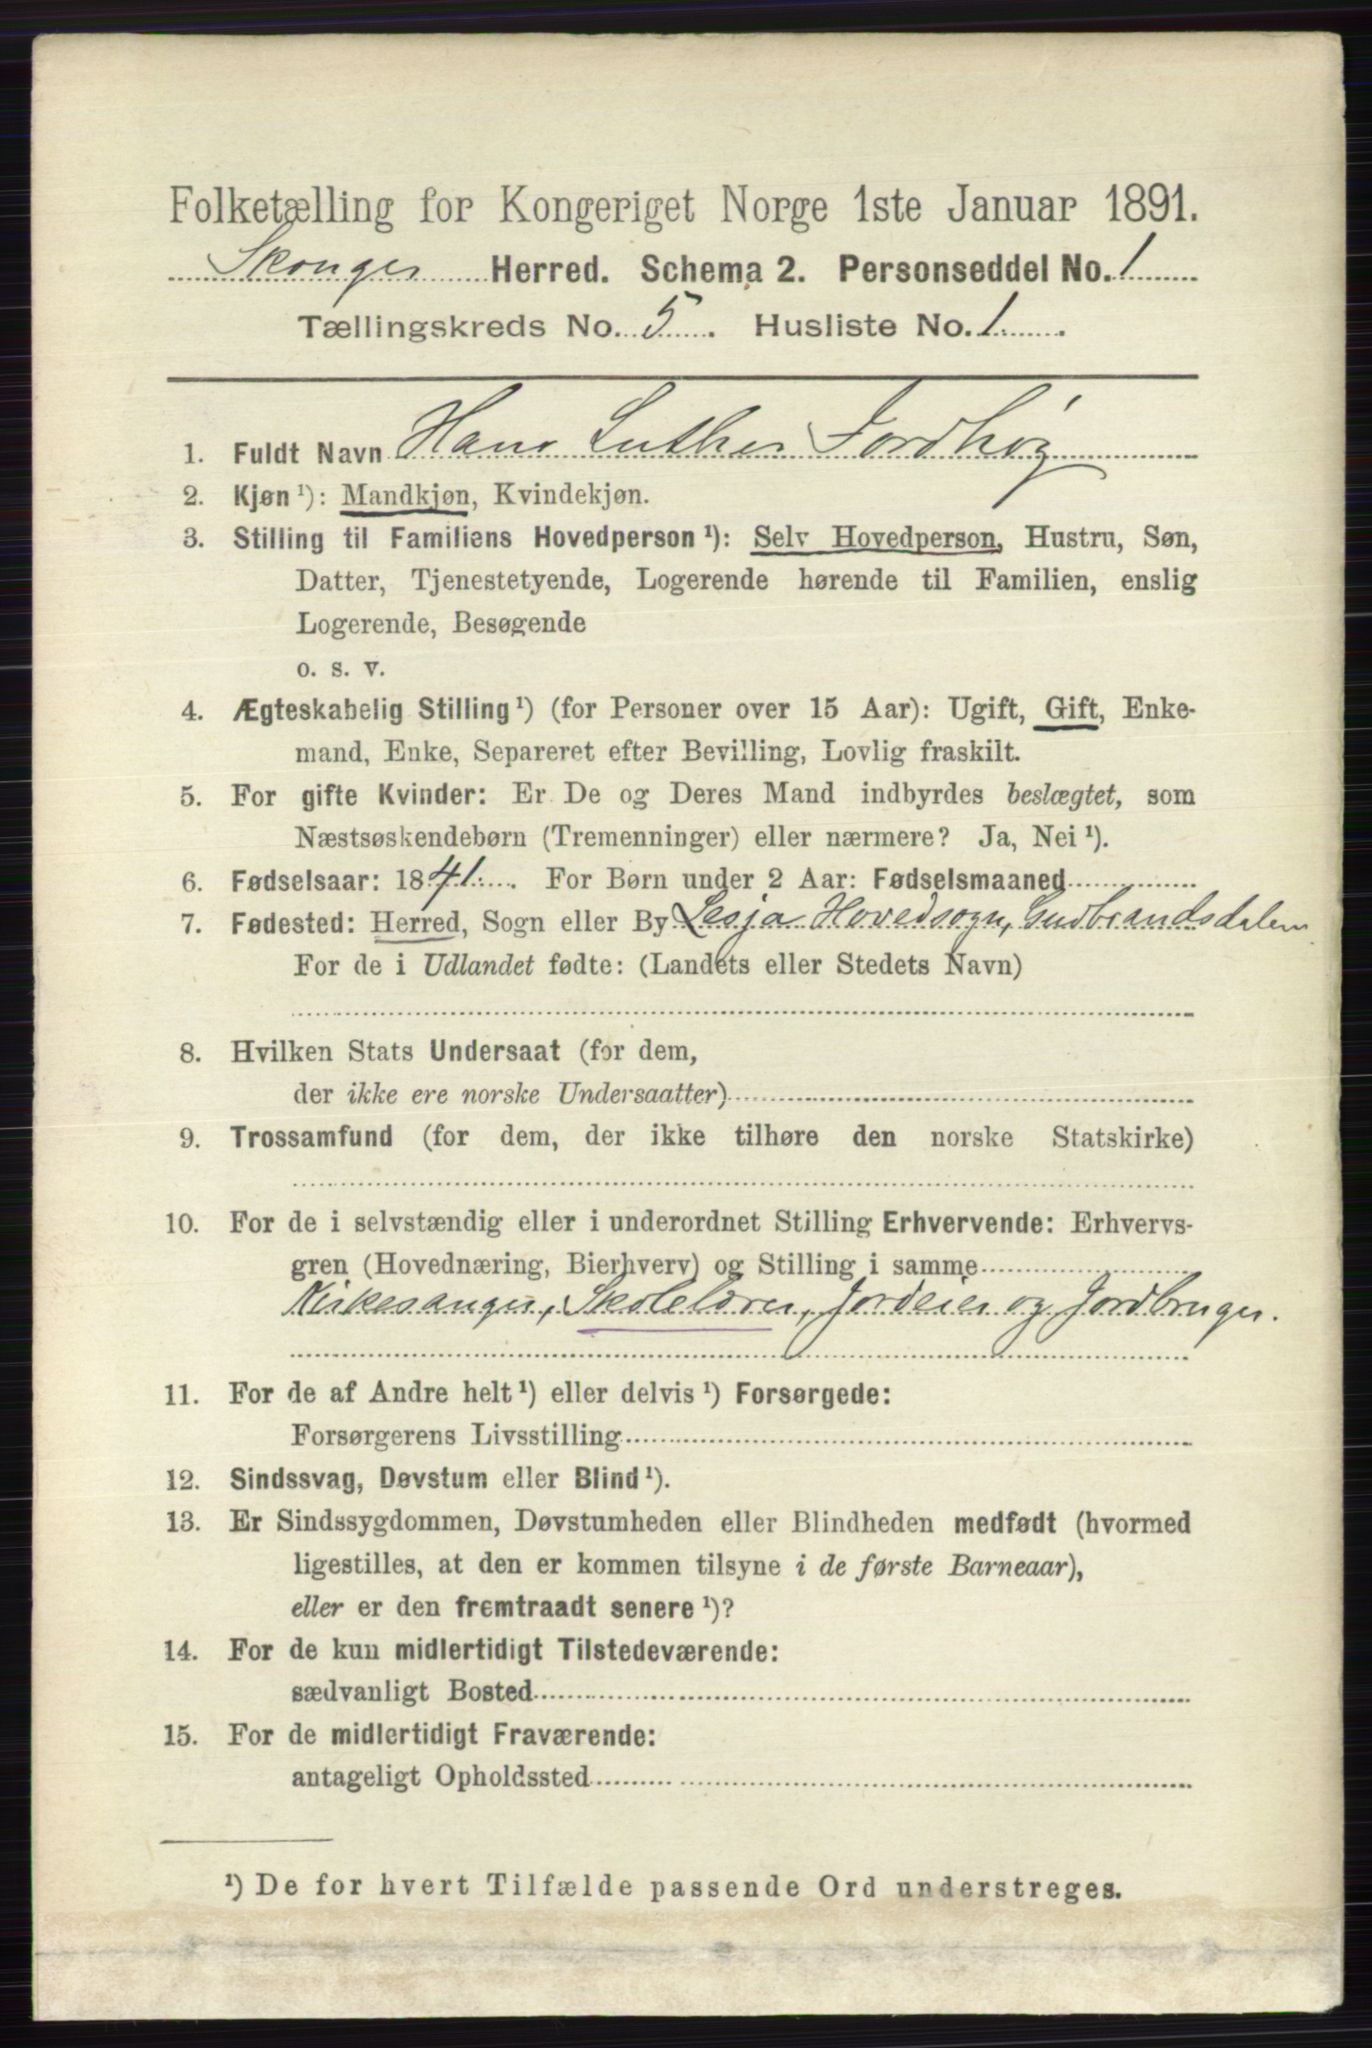 Folketælling for Kongeriget Norge 1ste Januar 1891.
Skouger Herred. Schema 2. Personseddel No. 1
Tællingskreds No. 5. Husliste No. 1.
1. Fuldt Navn Hans Luther Jordhøy
2. Kjøn ¹): Mandkjøn, Kvindekjøn.
3. Stilling til Familiens Hovedperson ¹): Selv Hovedperson, Hustru, Søn,
Datter, Tjenestetyende, Logerende hørende til Familien, enslig
Logerende, Besøgende
o. s. v.
4. Ægteskabelig Stilling ¹) (for Personer over 15 Aar): Ugift, Gift, Enke-
mand, Enke, Separeret efter Bevilling, Lovlig fraskilt.
5. For gifte Kvinder: Er De og Deres Mand indbyrdes beslægtet, som
Næstsøskendebørn (Tremenninger) eller nærmere? Ja, Nei ¹).
6. Fødselsaar: 1841. For Børn under 2 Aar: Fødselsmaaned
7. Fødested: Herred, Sogn eller By Lesja Hovedsogn, Gudbrandsdalen
For de i Udlandet fødte: (Landets eller Stedets Navn)
8. Hvilken Stats Undersaat (for dem,
der ikke ere norske Undersaatter)
9. Trossamfund (for dem, der ikke tilhøre den norske Statskirke)
10. For de i selvstændig eller i underordnet Stilling Erhvervende: Erhvervs-
gren (Hovednæring, Bierhverv) og Stilling i samme
Kirkesanger, Skolelærer, Jordeier og Jordbruger.
11. For de af Andre helt ¹) eller delvis ¹) Forsørgede:
Forsørgerens Livsstilling
12. Sindssvag, Døvstum eller Blind ¹).
13. Er Sindssygdommen, Døvstumheden eller Blindheden medfødt (hvormed
ligestilles, at den er kommen tilsyne i de første Barneaar),
eller er den fremtraadt senere ¹)?
14. For de kun midlertidigt Tilstedeværende:
sædvanligt Bosted
15. For de midlertidigt Fraværende:
antageligt Opholdssted
¹) De for hvert Tilfælde passende Ord understreges.